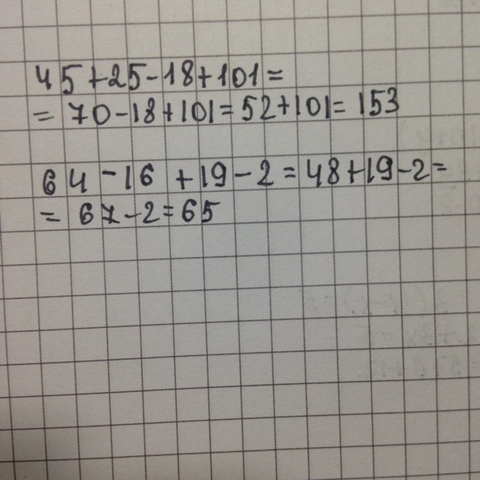 45+25-18+101=
= 70-18+101=52+101= 153
64-16 +19-2=48+19-2=
= 67-2=65